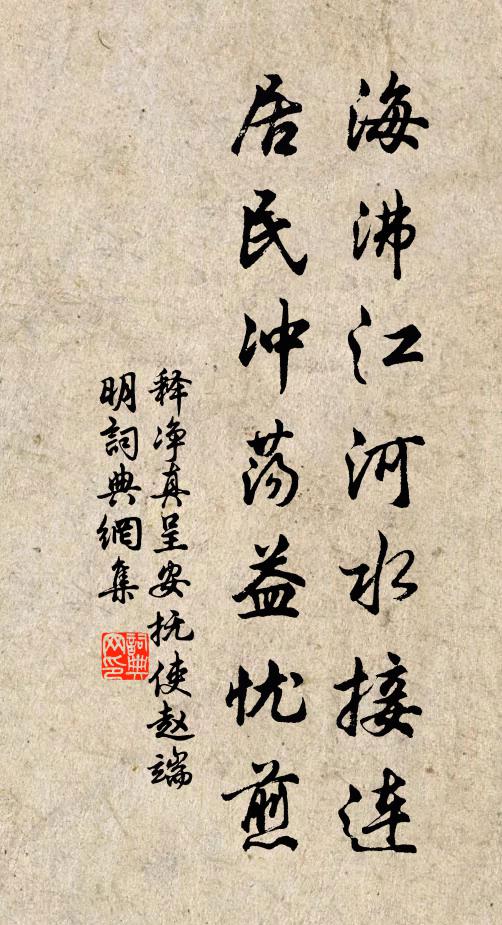 海沸江河水接连
居民冲荡益忧煎
释净真呈安抚使赵端
明詞典網集
詞典网印